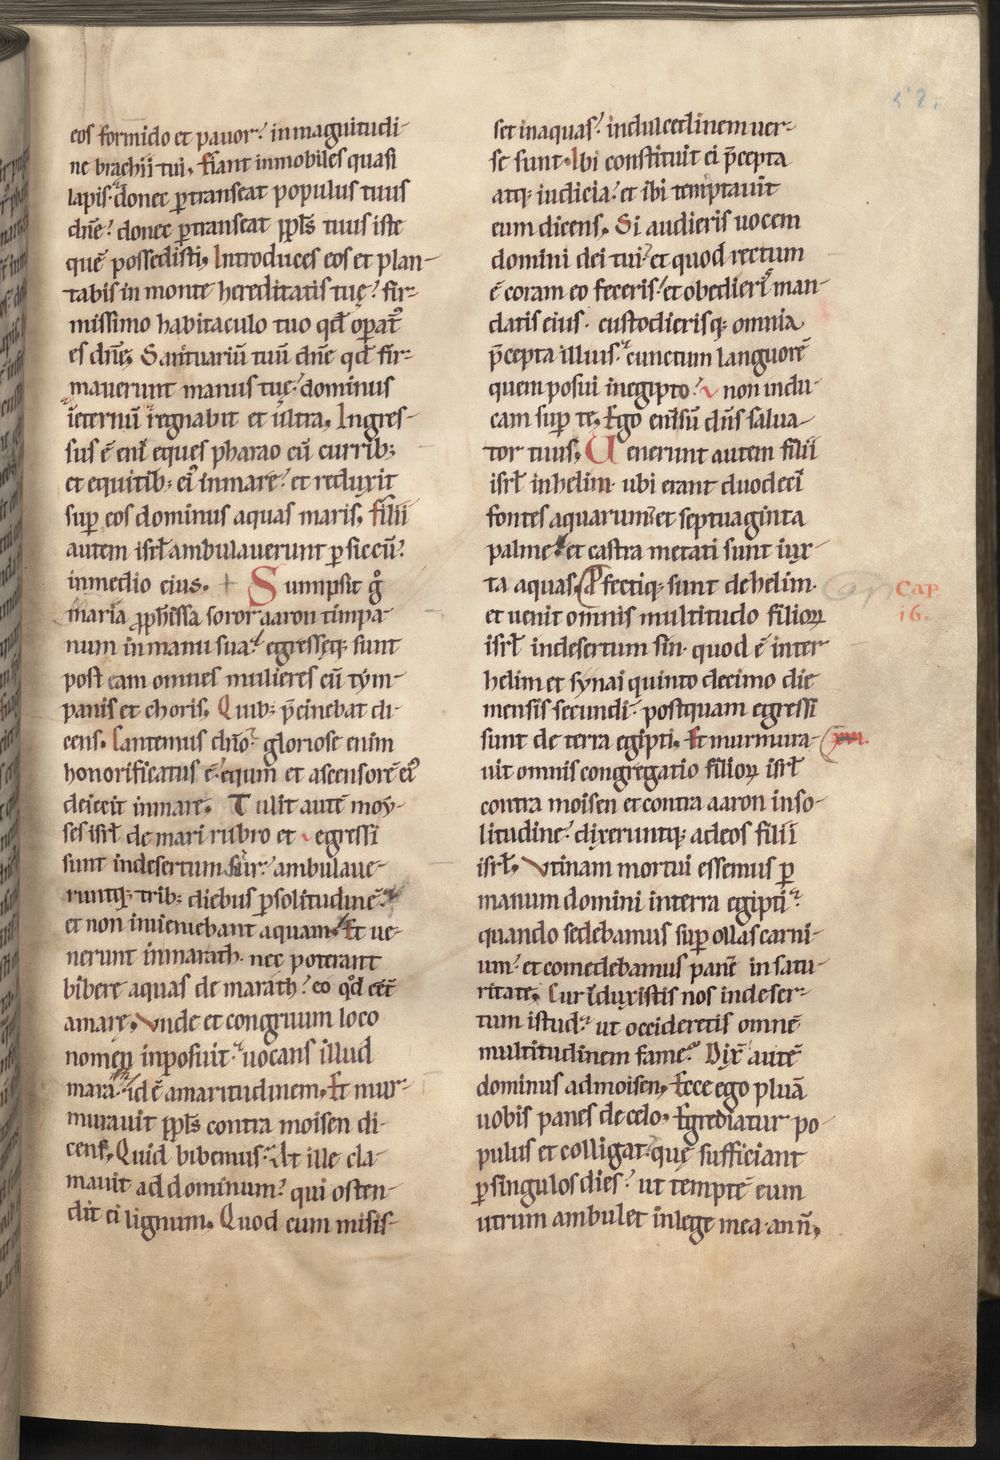 52.
eos formido et pauor. in magnitudi-
ne brachii tui. Fiant inmobiles quasi
lapis. donec ptranseat populus tuus
dñe? donec ptranseat ppl̄s tuus iste
quē possedisti. Introduces eos et plan-
tabis in monte hereditatis tuę? fir-
missimo habitaculo tuo qd̄ opat᷒
es dñe, Sanctuariū tuū dñe qd̄ fir-
mauerunt manus tuę. dominus
ineternū regnabit et ultra, Ingres-
sus ē eni eques pharao cū currib;
et equitib; ei᷒ inmare. et reduxit
sup eos dominus aquas maris, filii
autem isrl̄ ambulauerunt p siccū?
inmedio eius. + Sumpsit g̊
maria pphissa soror aaron timpa-
num in manu sua. egressęq; sunt
post eam omnes mulieres cū tym-
panis et choris, Quib; p̄cinebat di-
cens. Cantemus dño. gloriose enim
honorificatus ē. equm et ascensorē ei᷒
deiecit inmare. Tulit autē moy-
ses isrl̄ de mari rubro et egressi
sunt indesertum sur. ambulaue-
runtq; trib; diebus p solitudinē.
et non inueniebant aquam. Et ue-
nerunt inmarath. nec poterant
bibere aquas de marath? eo qd̄ eēt
amarę, Vnde et congruum loco
nomen inposuit. uocans illud
mara. id ē amaritudinem, Et mur-
murauit ppl̄s contra moisen di-
cens, Quid bibemus. At ille cla-
mauit ad dominum? qui osten-
dit ei lignum, Quod cum misis-
set inaquas? indulcedinem uer-
se sunt. Ibi constituit ei p̄cepta
atq; iudicia. et ibi temptauit
eum dicens, Si audieris uocem
domini dei tui. et quod rectum
ē coram eo feceris. et obedieris man-
datis eius. custodierisq; omnia
p̄cepta illius. cunctum languorē
quem posui inegipto? non indu-
cam sup te, Ego eni sū dñs salua-
tor tuus, Uenerunt autem filii
isrl̄ inhelim. ubi erant duodeci
fontes aquarum. et septuaginta
palme. et castra metati sunt iux-
ta aquas. Pfectiq; sunt dehelim.
Cap
Cap
16.
et uenit omnis multitudo filioꝝ
isrl̄ indesertum sin. quod ē inter
helim et synai quinto decimo die
mensis secundi. postquam egressi
sunt de terra egipti. Et murmura-
uit omnis congregatio filioꝝ isrl̄
contra moisen et contra aaron inso-
litudine. dixeruntq; adeos filii
isrl̄, Vtinam mortui essemus p
manum domini interra egipti.
quando sedebamus sup ollas carni-
um. et comedebamus panē in satu-
ritate, Cur iduxistis nos indeser-
tum istud. ut occideretis omnē
multitudinem fame. Dix̄ autē
dominus admoisen, Ecce ego pluā
uobis panes de celo, Egrediatur po-
pulus et colligat. quę sufficiant
p singulos dies? ut temptē eum
utrum ambulet inlege mea an ñ,